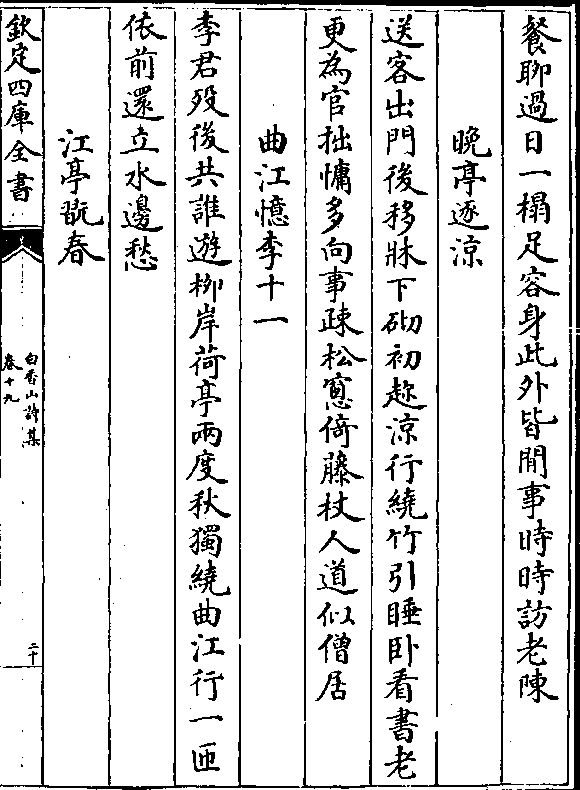 餐聊過日一榻足容身此外皆閒事時時訪老陳
晚亭逐涼
送客出門後移牀下砌初趂涼行繞竹引睡卧看書老
更為官拙慵多向事疎松窓倚藤杖人道似僧居
曲江憶李十一
李君殁後共誰遊柳岸荷亭兩度秋獨繞曲江行一匝
依前還立水邊愁
江亭翫春
欽定四庫全書
白香山詩集
卷十九
二十